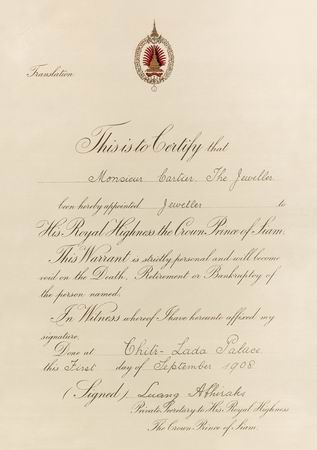 Translation
This is to Certify that
Monsieur Cartier, The Jeweller
been hereby appointed Jeweller to
His Royal Highness the Crown Prince of Siam.
This Warrant is strictly personal and will become
void on the Death, Retirement or Bankruptcy of
the person named.
In Witness whereof I have hereunto affixed my
signature,
Done at Chite-Lada Palace
this First day of September 1908
(Signed) Luang Abhiraks
Private Secretary to His Royal Highness
The Crown Prince of Siam.